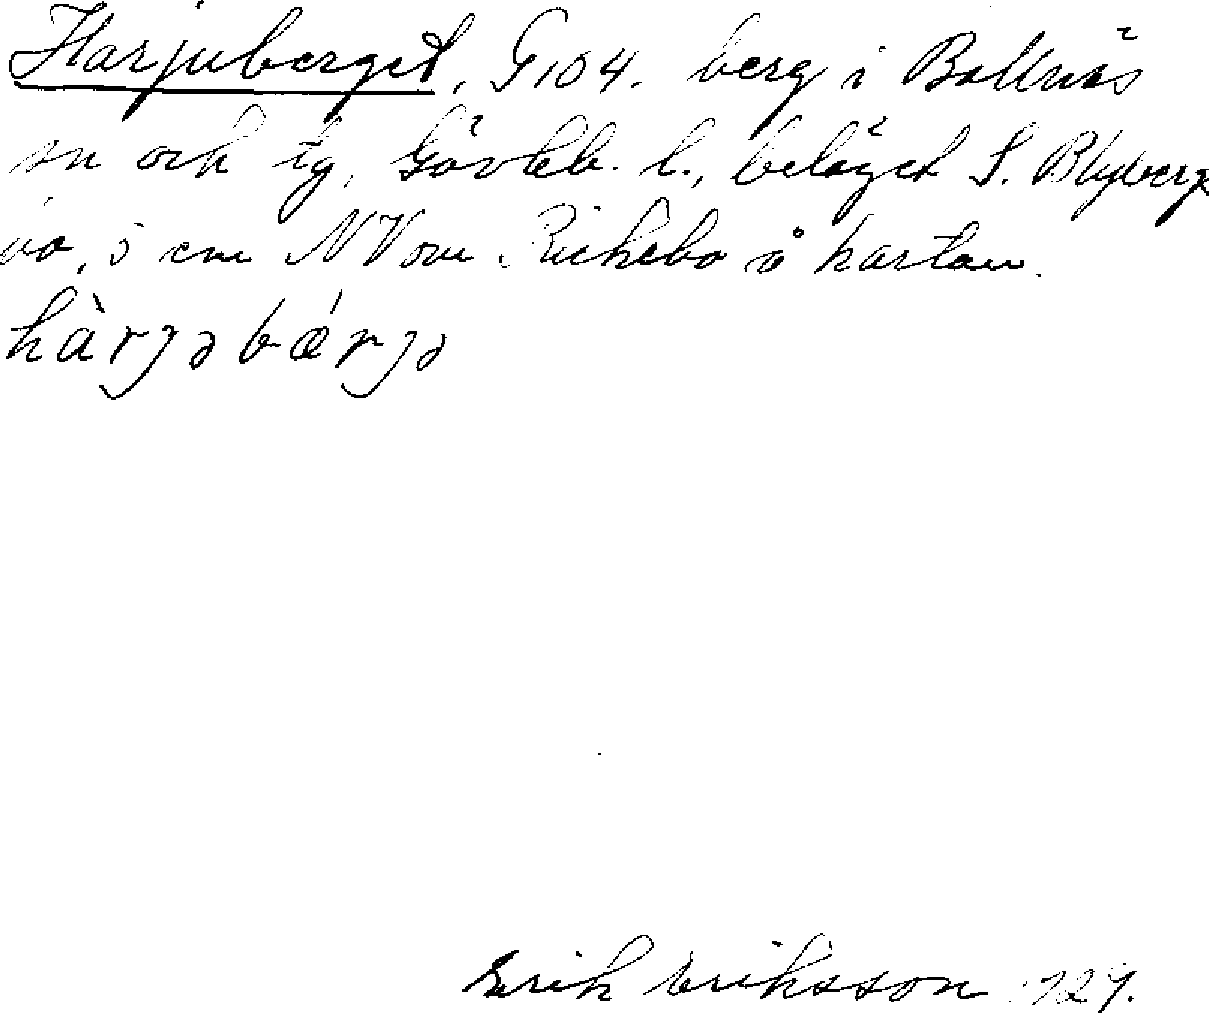 Harjuberget, G 104. berg i Bollnäs
sn och tg, Gävleb. l., beläget S. Blyberg
5 cm NV om Rickebo å kartan.
hàrjəbǽrjə
Erik Eriksson 1929.